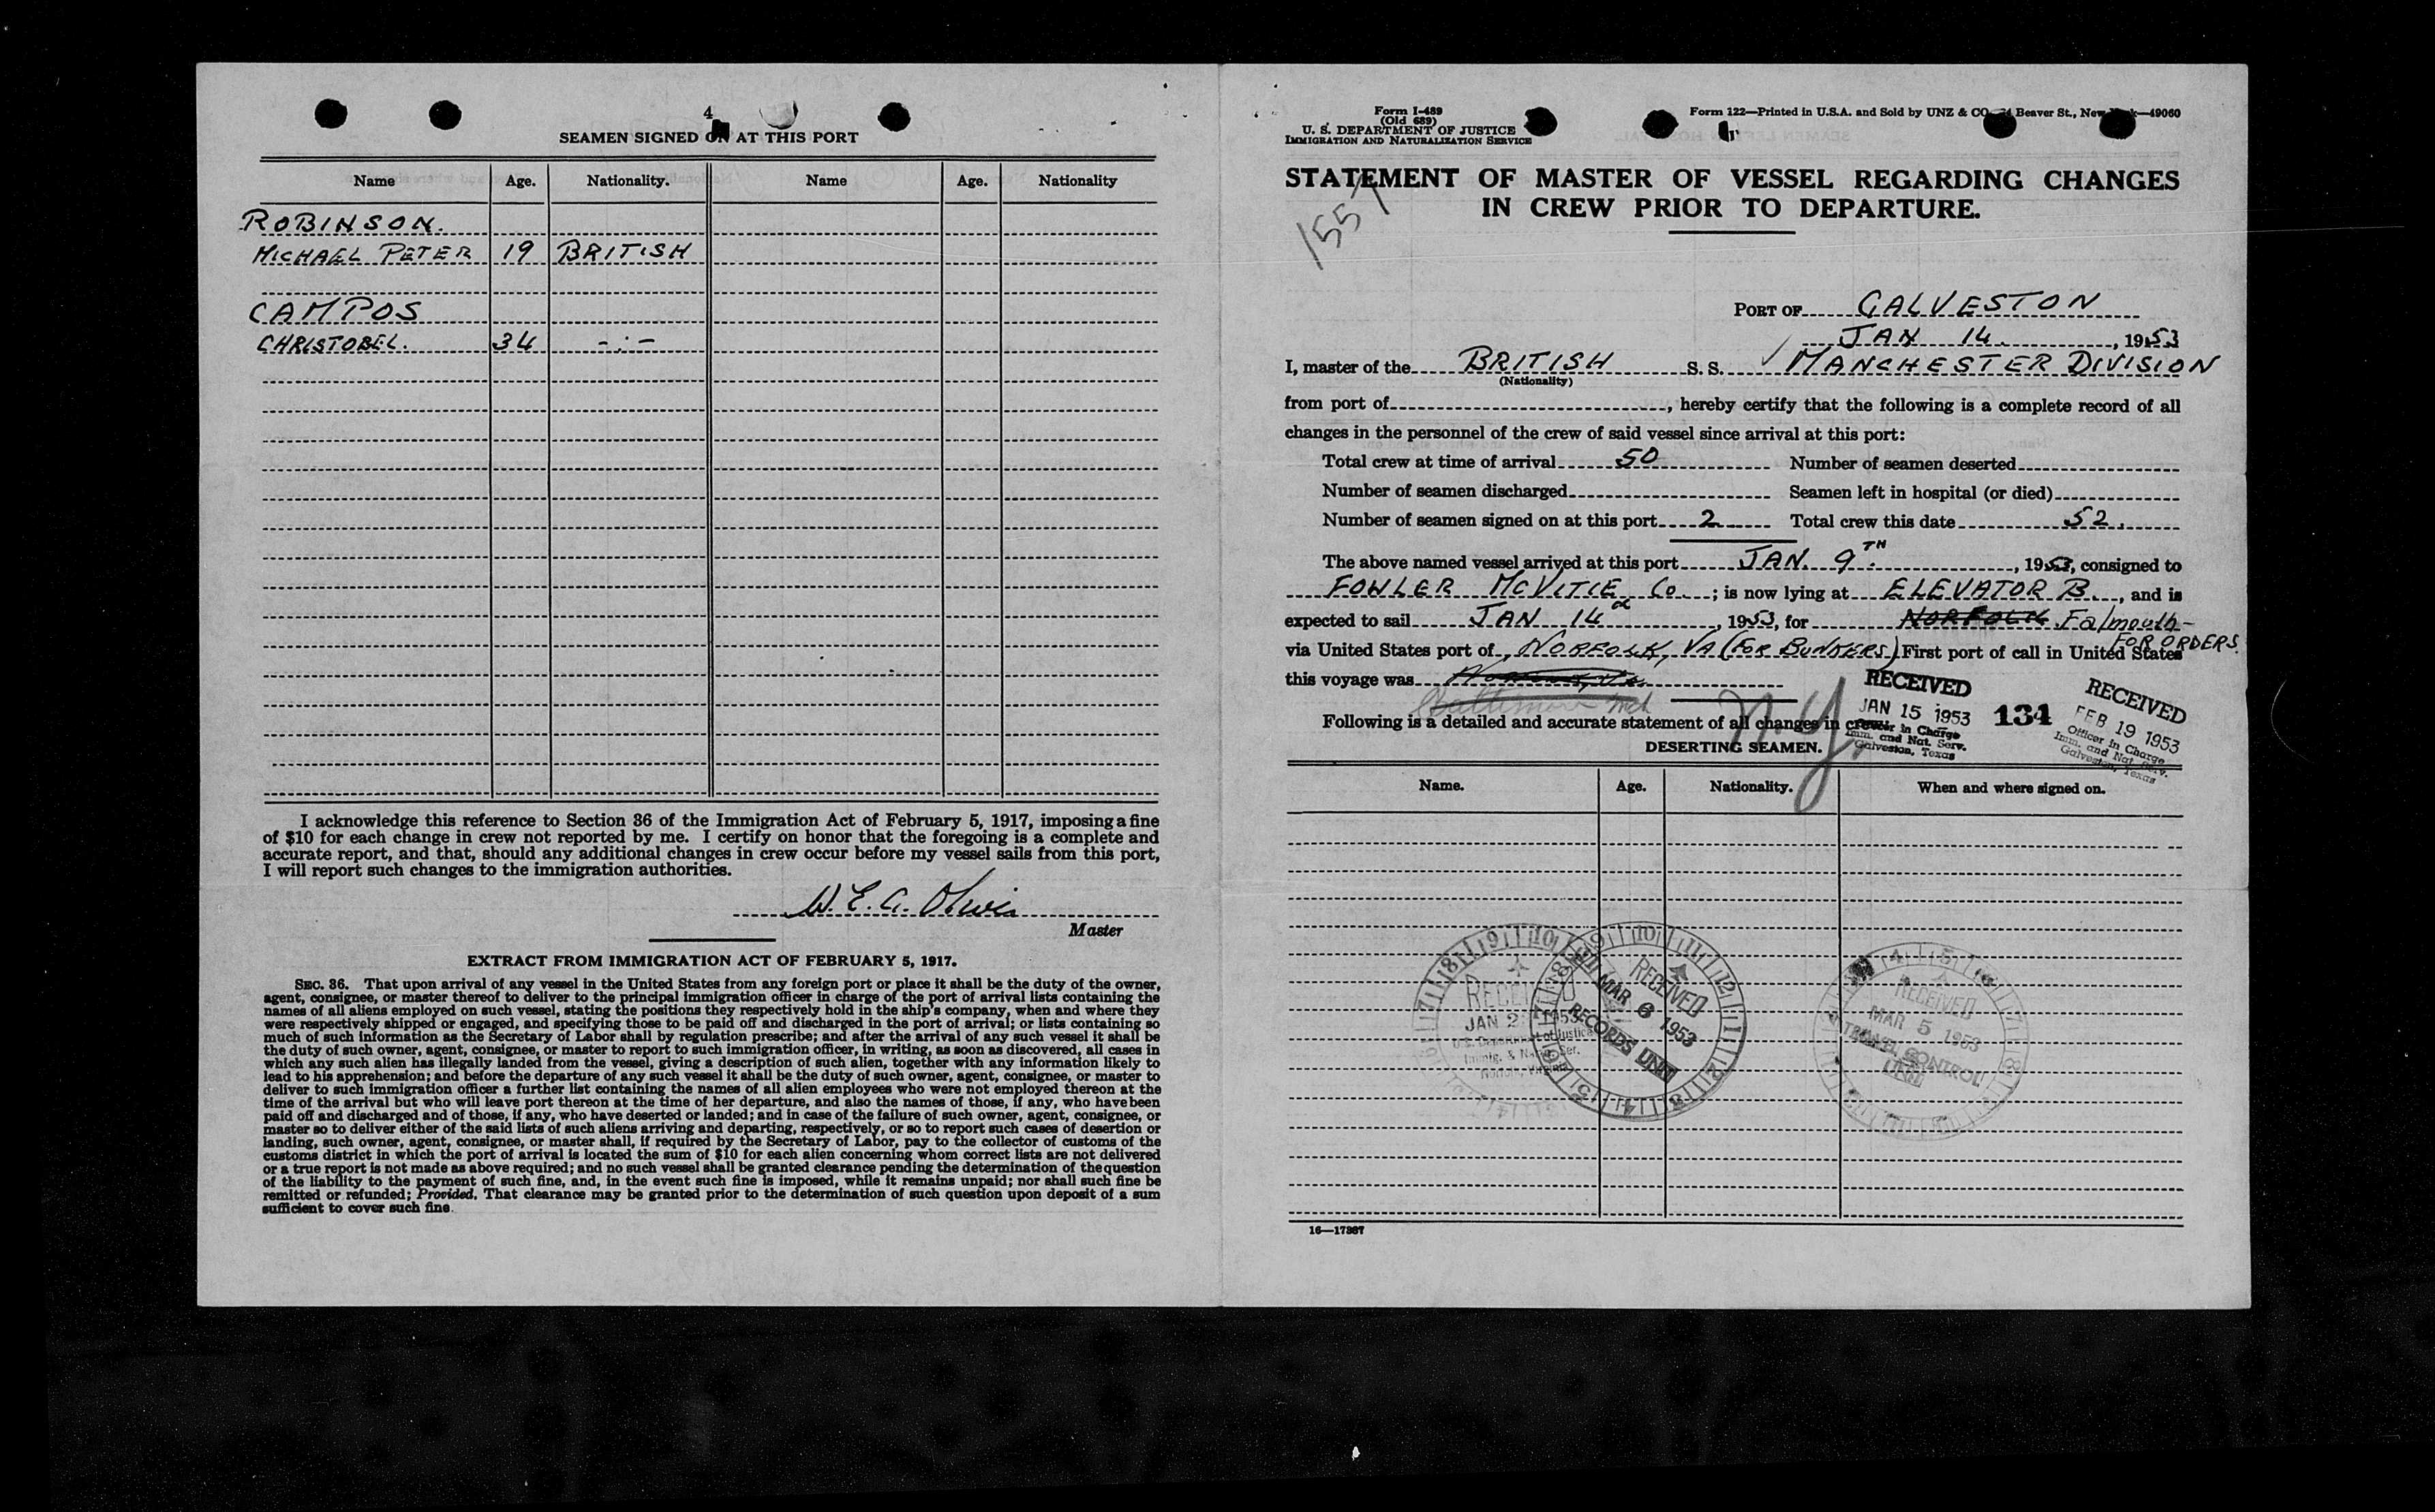 4
SEAMEN SIGNED ON AT THIS PORT
Name Age. Nationality. Name Age. Nationality
ROBINSON.
MICHAEL PETER 19 BRITISH
CAMPOS
CHRISTOBEL. 34 -:-
I acknowledge this reference to Section 36 of the Immigration Act of February 5, 1917, imposing a fine
of $10 for each change in crew not reported by me. I certify on honor that the foregoing is a complete and
accurate report, and that, should any additional changes in crew occur before my vessel sails from this port,
I will report such changes to the immigration authorities.
W. E. G. Oliver
Master
EXTRACT FROM IMMIGRATION ACT OF FEBRUARY 5, 1917.
SEC. 36. That upon arrival of any vessel in the United States from any foreign port or place it shall be the duty of the owner,
agent, consignee, or master thereof to deliver to the principal immigration officer in charge of the port of arrival lists containing the
names of all aliens employed on such vessel, stating the positions they respectively hold in the ship's company, when and where they
were respectively shipped or engaged, and specifying those to be paid off and discharged in the port of arrival; or lists containing so
much of such information as the Secretary of Labor shall by regulation prescribe; and after the arrival of any such vessel it shall be
the duty of such owner, agent, consignee, or master to report to such immigration officer, in writing, as soon as discovered, all cases in
which any such alien has illegally landed from the vessel, giving a description of such alien, together with any information likely to
lead to his apprehension; and before the departure of any such vessel it shall be the duty of such owner, agent, consignee, or master to
deliver to such immigration officer a further list containing the names of all alien employees who were not employed thereon at the
time of the arrival but who will leave port thereon at the time of her departure, and also the names of those, if any, who have been
paid off and discharged and of those, if any, who have deserted or landed; and in case of the failure of such owner, agent, consignee, or
master so to deliver either of the said lists of such aliens arriving and departing, respectively, or so to report such cases of desertion or
landing, such owner, agent, consignee, or master shall, if required by the Secretary of Labor, pay to the collector of customs of the
customs district in which the port of arrival is located the sum of $10 for each alien concerning whom correct lists are not delivered
or a true report is not made as above required; and no such vessel shall be granted clearance pending the determination of the question
of the liability to the payment of such fine, and, in the event such fine is imposed, while it remains unpaid; nor shall such fine be
remitted or refunded; Provided, That clearance may be granted prior to the determination of such question upon deposit of a sum
sufficient to cover such fine.
Form I-489
(Old 689)
U. S. DEPARTMENT OF JUSTICE
IMMIGRATION AND NATURALIZATION SERVICE
Form 122—Printed in U.S.A. and Sold by UNZ & CO. 24 Beaver St., New York—49060
STATEMENT OF MASTER OF VESSEL REGARDING CHANGES
IN CREW PRIOR TO DEPARTURE.
1557
PORT OF GALVESTON
JAN 14. , 1953
I, master of the BRITISH S. S. MANCHESTER DIVISION
(Nationality)
from port of , hereby certify that the following is a complete record of all
changes in the personnel of the crew of said vessel since arrival at this port:
Total crew at time of arrival 50 Number of seamen deserted
Number of seamen discharged Seamen left in hospital (or died)
Number of seamen signed on at this port 2 Total crew this date 52.
The above named vessel arrived at this port JAN. 9TH. , 1953, consigned to
FOWLER MCVITIE Co. ; is now lying at ELEVATOR B. , and is
expected to sail JAN 14 , 1953, for NORFOLK Falmouth-
FOR ORDERS.
via United States port of NORFOLK, VA (FOR BUNKERS) First port of call in United States
this voyage was Norfolk, Va.
Baltimore Md
N.Y.
Following is a detailed and accurate statement of all changes in crew:
DESERTING SEAMEN.
RECEIVED
JAN 15 1953
Officer in Charge
Imm. and Nat. Serv.
Galveston, Texas
134
RECEIVED
FEB 19 1953
Officer in Charge
Imm. and Nat. Serv.
Galveston, Texas
Name. Age. Nationality. When and where signed on.
RECEIVED
JAN 2 1953
U.S. Department of Justice
Immig. & Natz. Ser.
Norfolk, Virginia
RECEIVED
MAR 6 1953
RECORDS UNIT
RECEIVED
MAR 5 1953
TRAVEL CONTROL
UNIT
16—17867